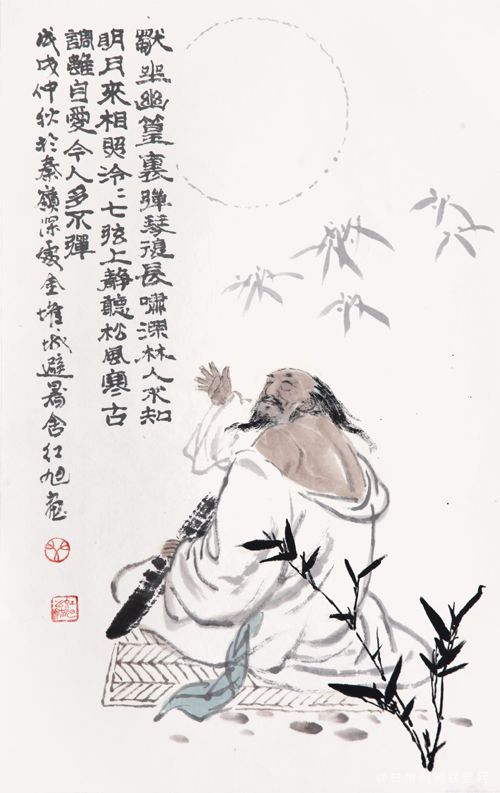 獨坐幽篁裏彈琴復長嘯深林人不知
明月來相照泠〻七弦上靜聽松風寒古
調雖自愛今人多不彈
戊戌仲秋於秦嶺深處金堆城避暑舍红旭畫